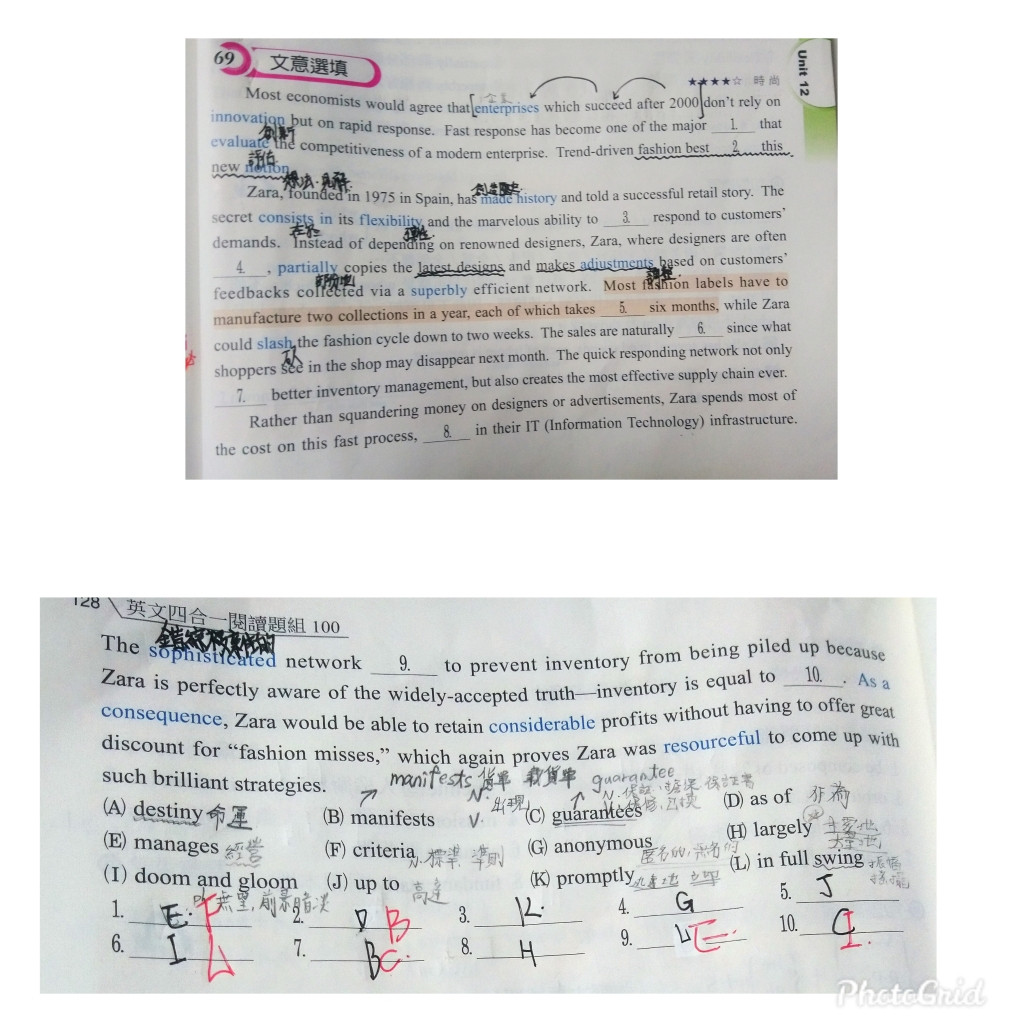 69 文意選填
★★★★☆ 時尚
Unit 12
Most economists would agree that [enterprises which succeed after 2000] don't rely on
innovation but on rapid response. Fast response has become one of the major 1. that
創新
evaluate the competitiveness of a modern enterprise. Trend-driven fashion best 2. this
評估
new notion.
想法.見解
Zara, founded in 1975 in Spain, has made history and told a successful retail story. The
創造歷史
secret consists in its flexibility and the marvelous ability to 3. respond to customers'
在於 彈性
demands. Instead of depending on renowned designers, Zara, where designers are often
4. , partially copies the latest designs and makes adjustments based on customers'
部份地 調整
feedbacks collected via a superbly efficient network. Most fashion labels have to
manufacture two collections in a year, each of which takes 5. six months, while Zara
could slash the fashion cycle down to two weeks. The sales are naturally 6. since what
shoppers see in the shop may disappear next month. The quick responding network not only
7. better inventory management, but also creates the most effective supply chain ever.
Rather than squandering money on designers or advertisements, Zara spends most of
the cost on this fast process, 8. in their IT (Information Technology) infrastructure.
128 英文四合一閱讀題組 100
The sophisticated network 9. to prevent inventory from being piled up because
Zara is perfectly aware of the widely-accepted truth—inventory is equal to 10. . As a
consequence, Zara would be able to retain considerable profits without having to offer great
discount for “fashion misses,” which again proves Zara was resourceful to come up with
such brilliant strategies.
manifests 貨單 載貨單 guarantee
N. 出現 V.
(A) destiny 命運 (B) manifests (C) guarantees (D) as of 作為
(E) manages 經營 (F) criteria n.標準.準則 (G) anonymous (H) largely 主要地
匿名的
(I) doom and gloom (J) up to 高達 (K) promptly (L) in full swing
1. E. F 2. D B 3. K. 4. G 5. J
6. I L 7. B C. 8. H 9. L E. 10. C I.
PhotoGrid